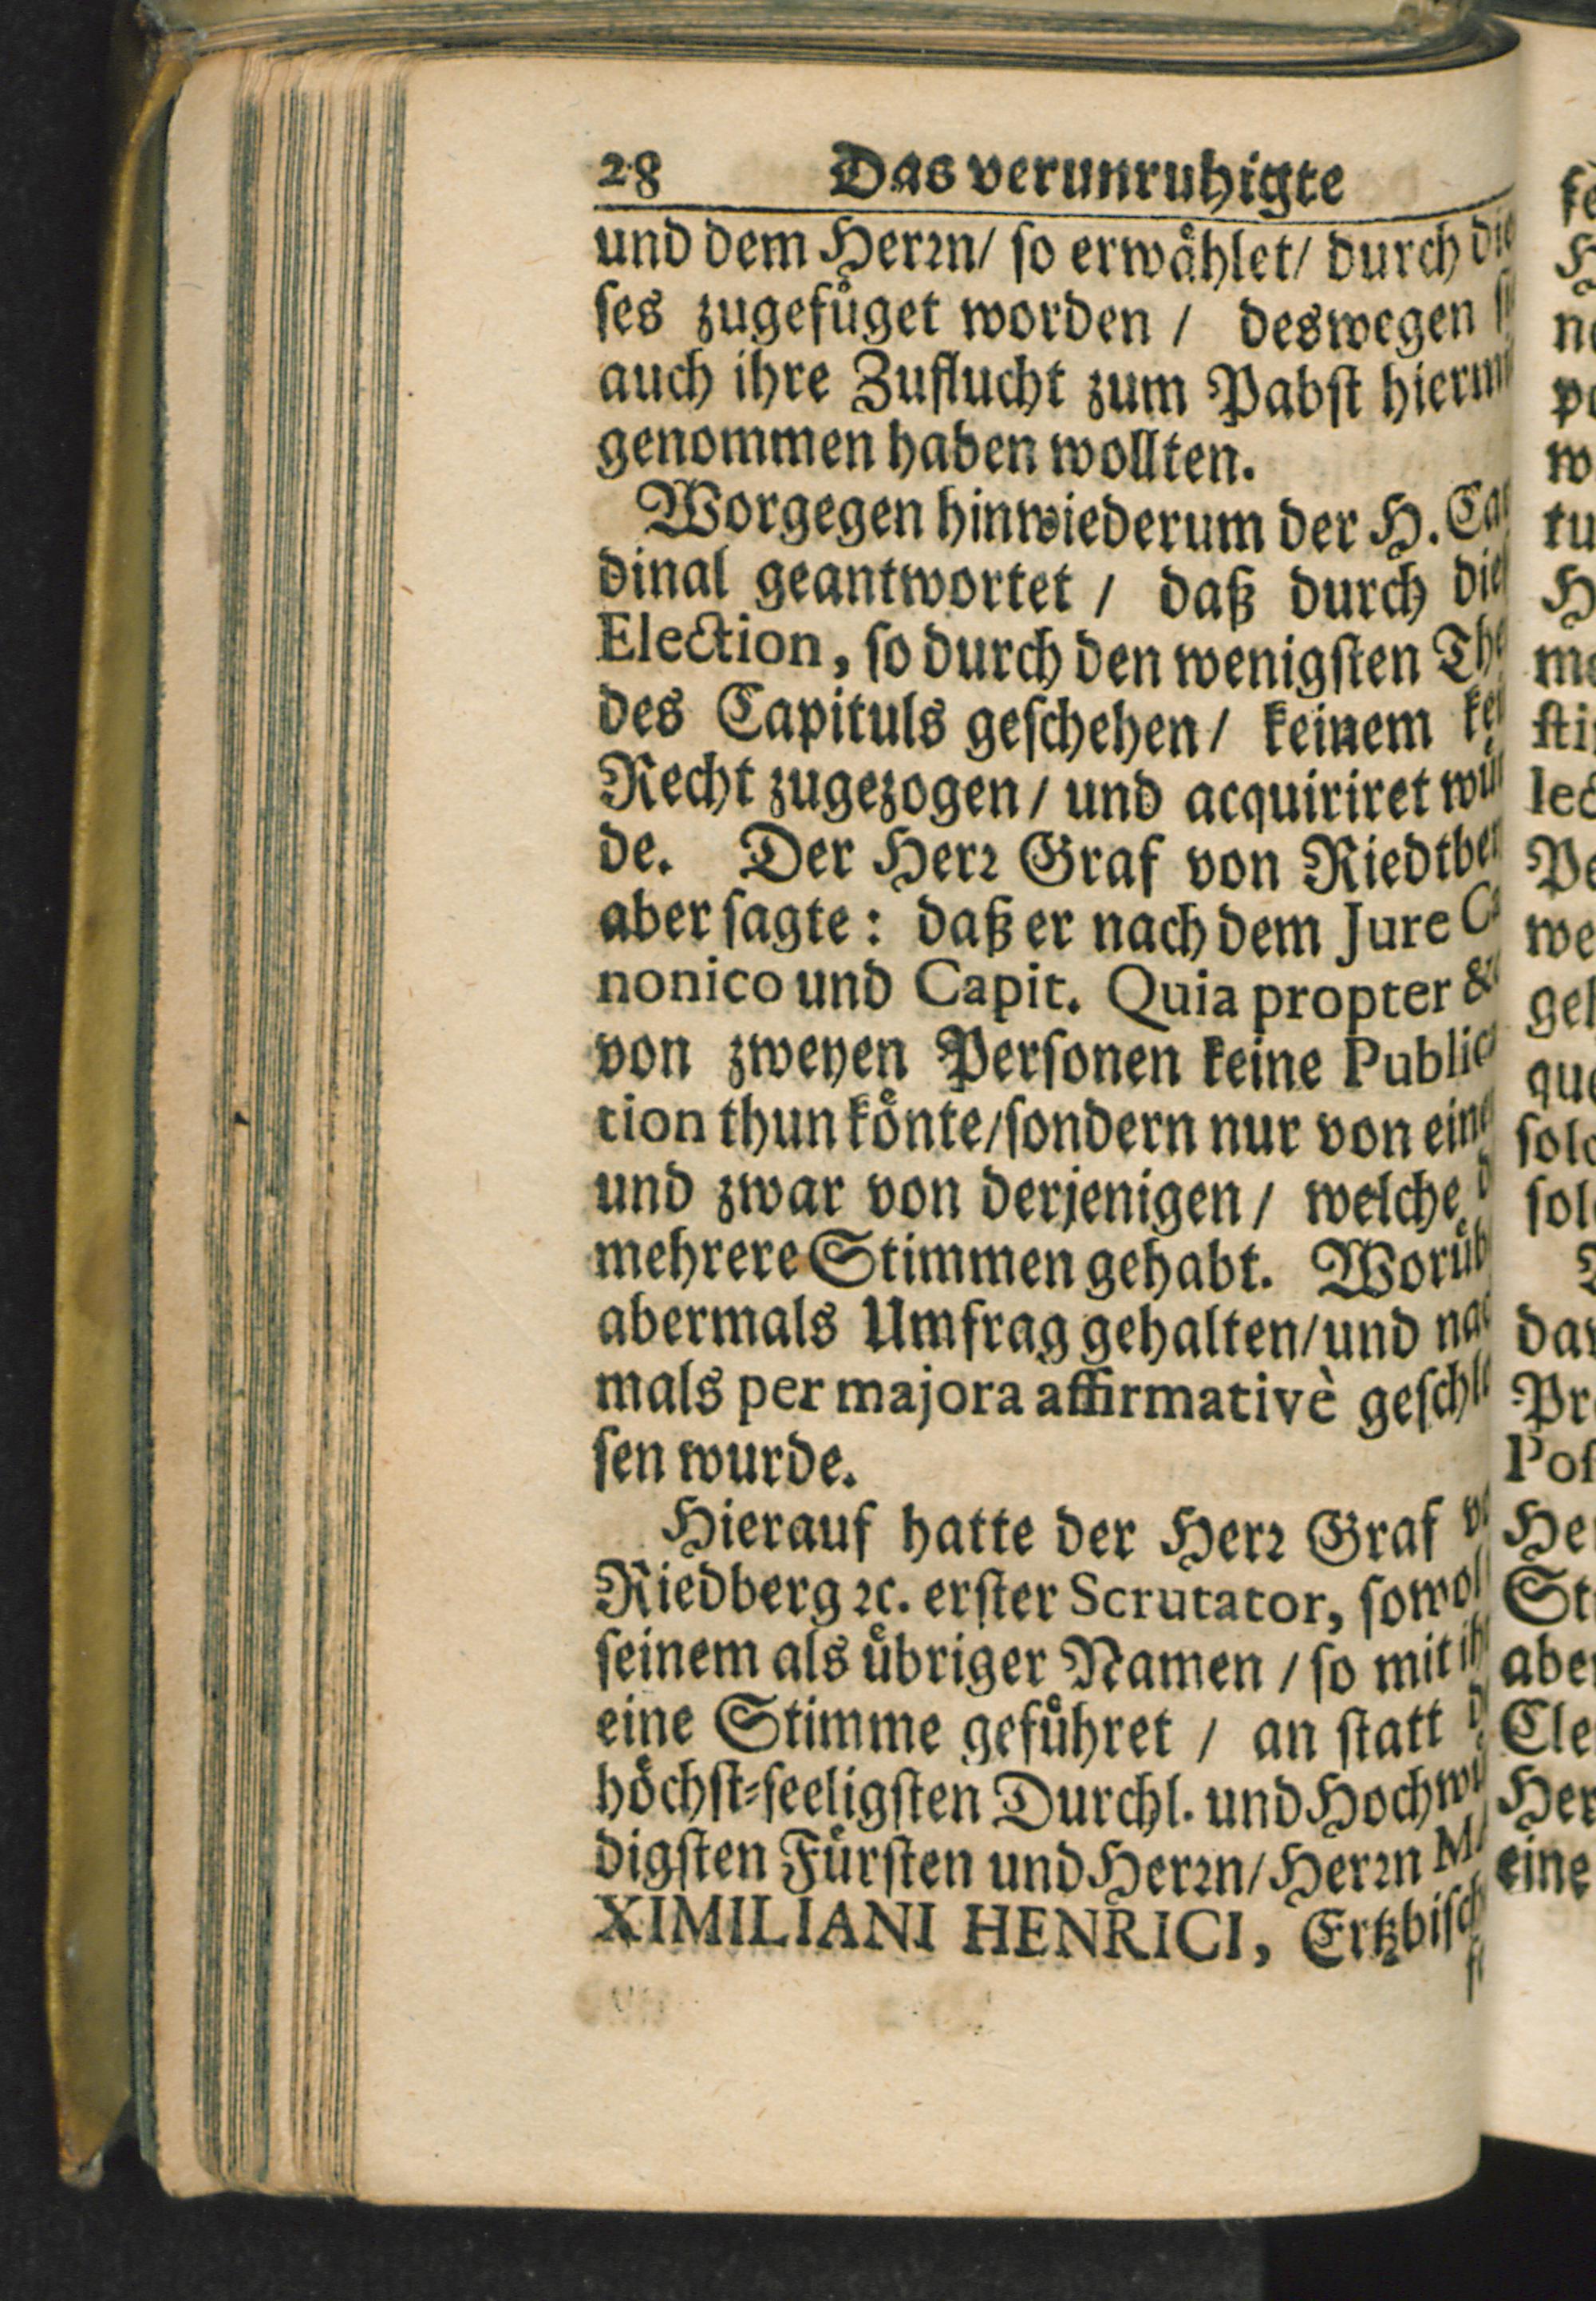 28 Das verunruhigte
und dem Herrn/ so erwählet/ durch
ses zugefüget worden / deswegen
auch ihre Zuflucht zum Pabst
genommen haben wollten.
Worgegen hinwiederum der H.
dinal geantwortet / daß durch
Election, so durch den wenigsten
des Capituls geschehen/ keinem
Recht zugezogen/ und acquiriret
de. Der Herr Graf von
aber sagte: daß er nach dem Jure
nonico und Capit. Quia propter
von zweyen Personen keine
tion thun könte/sondern nur von
und zwar von derjenigen/ welche
mehrere Stimmen gehabt.
abermals Umfrag gehalten/und
mals per majora affirmativè
sen wurde.
Hierauf hatte der Herr Graf
Riedberg ꝛc. erster Scrutator,
seinem als übriger Namen / so mit
eine Stimme geführet / an statt
höchst-seeligsten Durchl. und
digsten Fürsten und Herrn/ Herrn
XIMILIANI HENRICI,